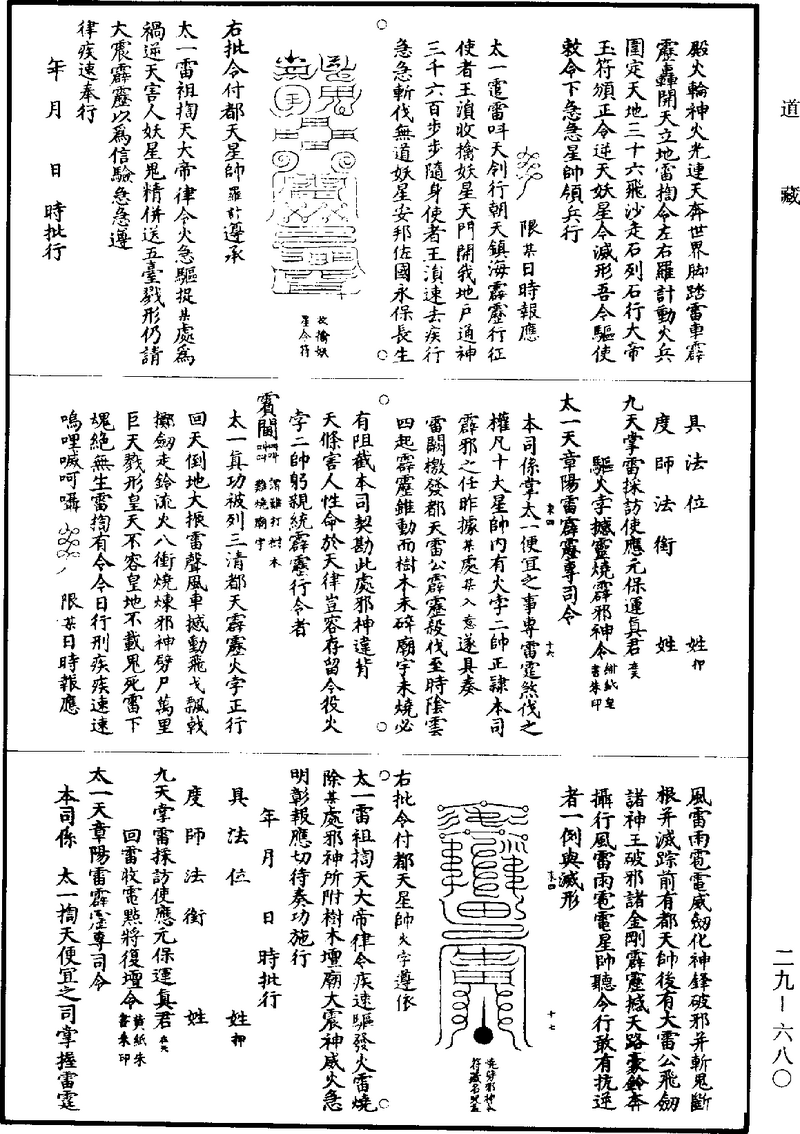 道藏
殿火輪神火光連天奔世界脚踏雷車霹
靂轟開天立地雷掏令左右羅計動火兵
圍定天地三十六飛沙走石列石行大帝
玉符頒正令逆天妖星令滅形吾令驅使
敕令下急急星帥領兵行
限某日時報應
太一雷雷吽天刽行朝天鎮海霹靂行征
使者王滇收擒妖星天門開我地戶通神
三千六百步步隨身使者王滇速去疾行
急急斬伐無道妖星安邦佐國永保長生
收擒妖
星令符
右批令付都天星帥羅計遵承
太一雷祖掏天大帝律令火急驅捉某處為
禍逆天害人妖星鬼精併送五臺戮形仍請
大震霹靂以為信驗急急遵
律疾速奉行
年月日時批行
具法位姓押
度師法銜姓
九天掌雷採訪使應元保運真君
驅火孛撼靈燒霹邪神令紺紙皂書朱印
太一天章陽雷霹靂專司令
本司係掌太一便宜之事專雷霆煞伐之
權凡十大星帥內有火孛二帥正隸本司
霹邪之任昨據某處某人意遂具奏
雷闕檄發都天雷公霹靂殺伐至時陰雲
四起霹靂雖動而樹木未碎廟宇未燒必
有阻截本司契勘此處邪神違背
天條害人性命於天律豈容存留今役火
孛二帥躬親統霹靂行令者
太一真功被列三清都天霹靂火孛正行
回天倒地大振雷聲風車撼動飛戈飄戟
擲劍走鈴流火八衝燒煉邪神劈尸萬里
巨天戮形皇天不容皇地不載鬼死雷下
魂絕無生雷掏有令令日行刑疾疾速速
嗚哩嘁呵囁限某日時報應
風雷雨雹電威劍化神鋒破邪并斬鬼斷
根并滅踪前有都天帥後有大雷公飛劍
諸神王破邪諸金剛霹靂撼天路豪鈴奔
攝行風雷雨雹電星帥聽令行敢有抗逆
者一例與滅形
十七
右批令付都天星帥火孛遵依
太一雷祖掏天大帝律令疾速驅發火雷燒
除某處邪神所附樹木壇廟大震神威火急
明彰報應切待奏功施行
年月日時批行
具法位姓押
度師法銜姓
九天掌雷採訪使應元保運真君
回雷收電點將復壇令黃紙朱書朱印
太一天章陽雷霹靂專司令
本司係太一掏天便宜之司掌握雷霆
二九—六八〇